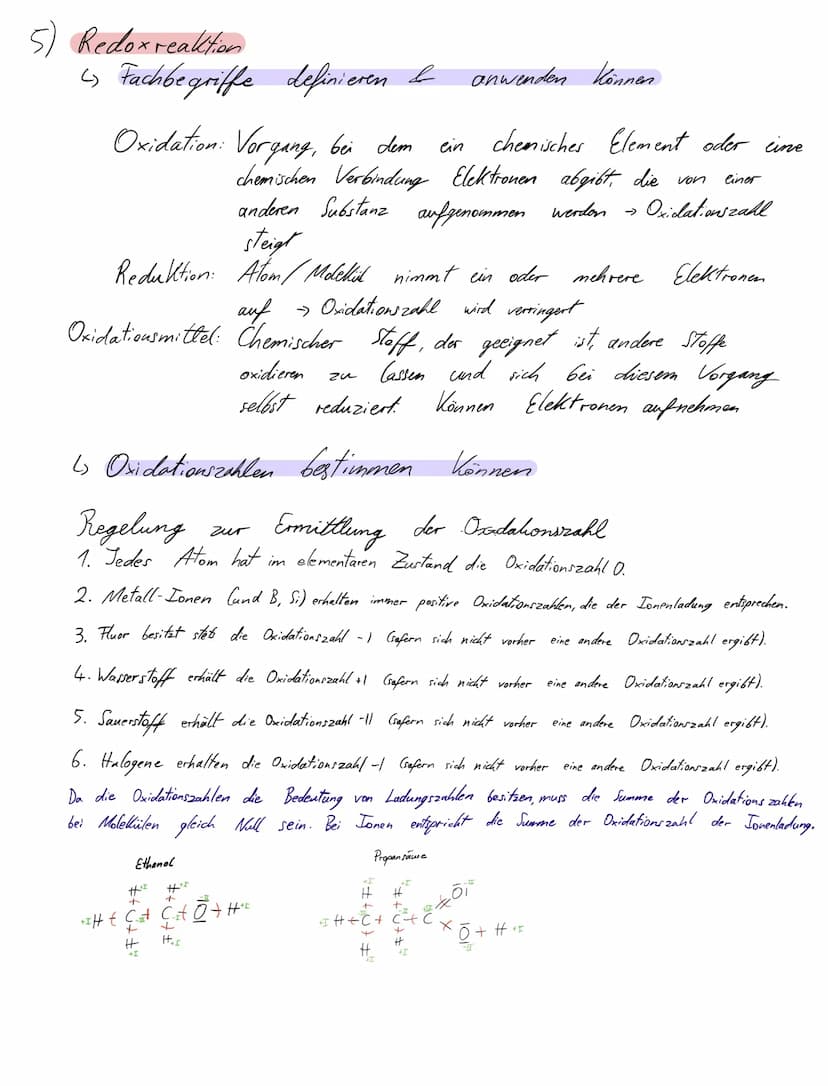 5) Redoxreaktion
↳ Fachbegriffe definieren & anwenden können
Oxidation: Vorgang, bei dem ein chemisches Element oder eine
chemischen Verbindung Elektronen abgibt, die von einer
anderen Substanz aufgenommen werden → Oxidationszahl
steigt
Reduktion: Atom/Molekül nimmt ein oder mehrere Elektronen
auf → Oxidationszahl wird verringert
Oxidationsmittel: Chemischer Stoff, der geeignet ist, andere Stoffe
oxidieren zu lassen und sich bei diesem Vorgang
selbst reduziert. Können Elektronen aufnehmen
↳ Oxidationszahlen bestimmen können
Regelung zur Ermittlung der Oxidationszahl
1. Jedes Atom hat im elementaren Zustand die Oxidationszahl 0.
2. Metall-Ionen (und B, Si) erhalten immer positive Oxidationszahlen, die der Ionenladung entsprechen.
3. Fluor besitzt stets die Oxidationszahl -I (sofern sich nicht vorher eine andere Oxidationszahl ergibt).
4. Wasserstoff erhält die Oxidationszahl +I (sofern sich nicht vorher eine andere Oxidationszahl ergibt).
5. Sauerstoff erhält die Oxidationszahl -II (sofern sich nicht vorher eine andere Oxidationszahl ergibt).
6. Halogene erhalten die Oxidationszahl -I (sofern sich nicht vorher eine andere Oxidationszahl ergibt).
Da die Oxidationszahlen die Bedeutung von Ladungszahlen besitzen, muss die Summe der Oxidationszahlen
bei Molekülen gleich Null sein. Bei Ionen entspricht die Summe der Oxidationszahl der Ionenladung.
Ethanol
H +I H +I
+I H C C O -II H +I
H +I H +I
Propansäure
+I H H +I O -II
+I H C C C
O -II H +I
H +I H +I